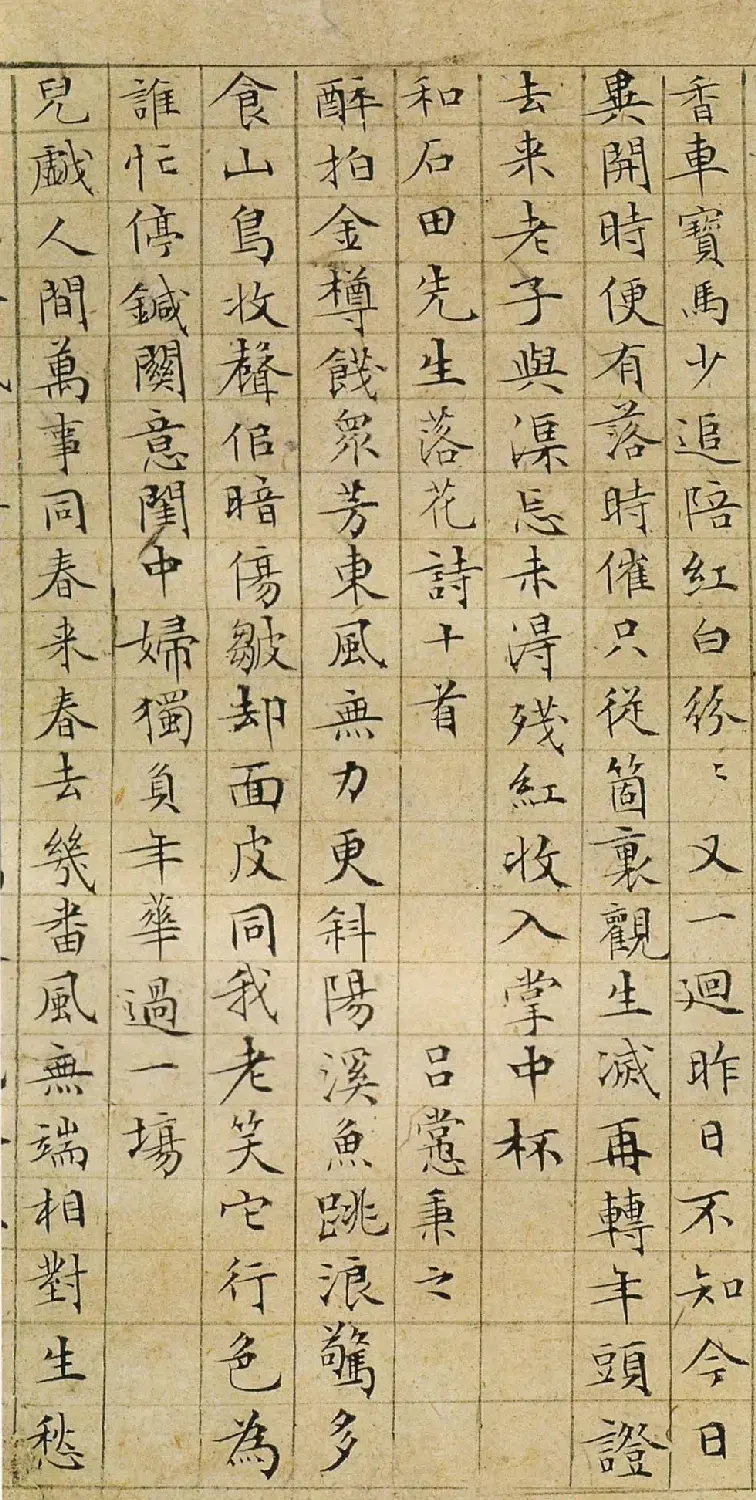 香車寶馬少追陪紅白紛〻又一迴昨日不知今日
異開時便有落時催只從箇裏觀生滅再轉年頭證
去来老子與渠忘未得殘紅收入掌中杯
和石田先生落花詩十首 吕㦂秉之
醉拍金樽餞衆芳東風無力更斜陽溪魚跳浪驚多
食山鳥收聲佀暗傷皺却面皮同我老笑它行色為
誰忙停鍼關意閨中婦獨負年華過一場
兒戱人間萬事同春来春去幾畨風無端相對生愁